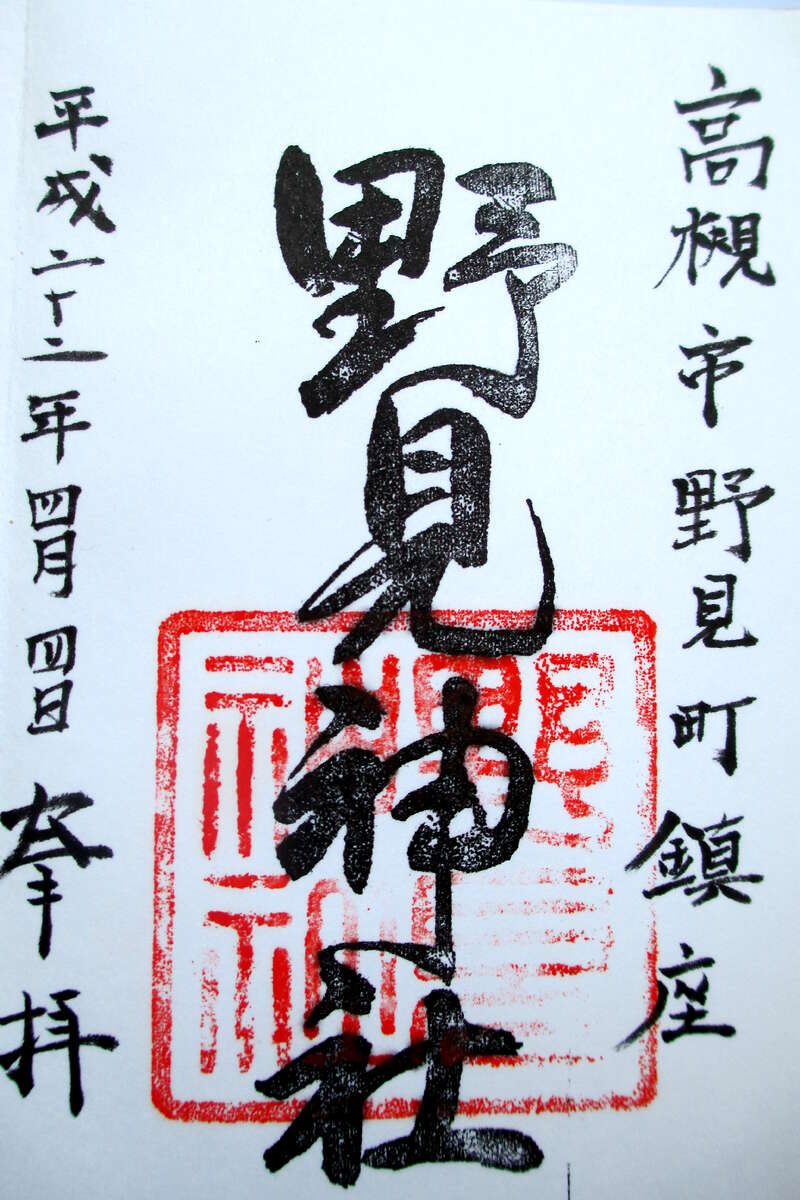 高槻市野見町鎮座
野見神社
平成二十二年四月四日
奉拝